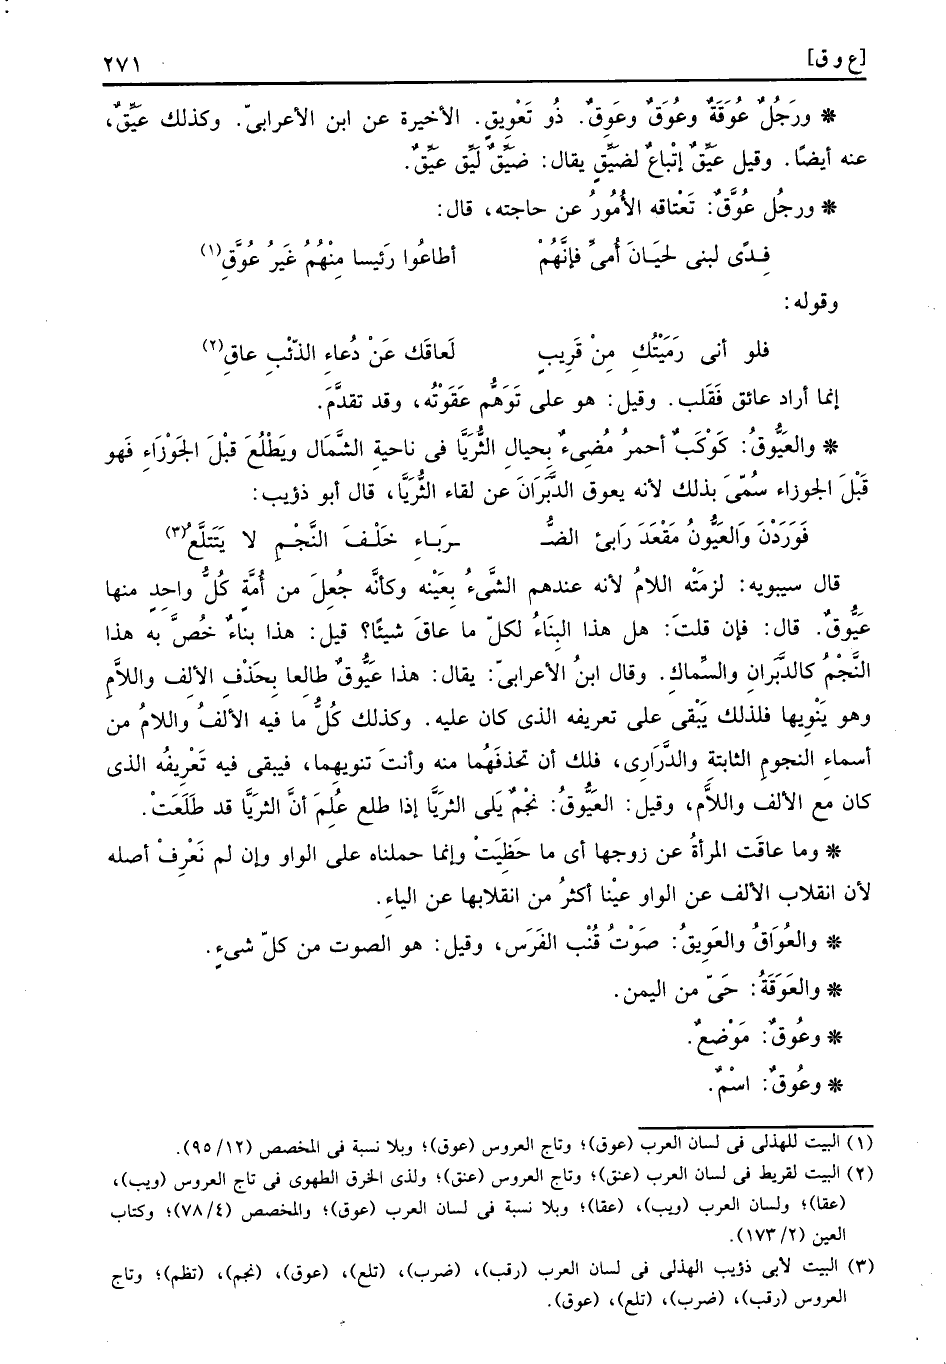 [ع و ق] ٢٧١
* ورَجُلٌ عُوَقَةٌ وعُوَقٌ وعَوِقٌ. ذُو تَعْوِيقٍ. الأخيرة عن ابن الأعرابىّ. وكذلك عَيِّقٌ،
عنه أيضًا. وقيل عَيِّقٌ إتْباعٌ لضَيِّقٍ يقال: ضَيِّقٌ لَيِّق عَيِّقٌ.
* ورجُل عُوَّقٌ: تَعْتاقه الأُمُورُ عن حاجته، قال:
فِدًى لبنى لحيَانَ أُمىِّ فإنَّهُمْ أطاعُوا رَئيسا مِنْهُمُ غَيرُ عُوَّقِ(١)
وقوله:
فلو أنى رَمَيْتُكِ مِنْ قَرِيبٍ لَعاقَك عَنْ دُعاءِ الذّئْبِ عاقِ(٢)
إنما أراد عائق فَقَلب. وقيل: هو على تَوَهُّم عَقَوْتُه، وقد تقدَّمَ.
* والعَيُّوقُ: كَوْكَبٌ أحمرُ مُضىءٌ بحيالِ الثُّرَيَّا فى ناحية الشَّمال ويَطْلُعَ قبْلَ الجَوْزَاءِ فهو
قَبْلَ الجوزاء سُمّىَ بذلك لأنه يعوق الدَّبَرَانَ عن لقاء الثُّرَيَّا، قال أبو ذؤيب:
فَوَرَدْنَ وَالعَيُّونُ مَقْعَدَ رَابئِ الضـُّ ـرَبـاءِ خَلْـفَ النَّجْـمِ لا يَتَتَلَّعُ(٣)
قال سيبويه: لزمَتْه اللامُ لأنه عندهم الشَّىءُ بِعَيْنه وكأنَّه جُعِلَ من أُمَّةٍ كُلُّ واحدٍ منها
عَيُّوقٌ. قال: فإن قلتَ: هل هذا البِنَاءُ لكلّ ما عاقَ شيئًا؟ قيل: هذا بناءٌ خُصَّ به هذا
النَّجْمُ كالدَّبَرانِ والسِّماكِ. وقال ابنُ الأعرابىّ: يقال: هذا عَيُّوقٌ طالعا بحَذْفِ الألف واللاَّمِ
وهو يَنْوِيها فلذلك يَبْقى على تعريفه الذى كان عليه. وكذلك كُلُّ ما فيه الألفُ واللامُ من
أسماء النجومِ الثابتةِ والدَّرَارِى، فلك أن تحذفَهُما منه وأنتَ تنويهما، فيبقى فيه تَعْرِيفُه الذى
كان مع الألف واللاَّمِ، وقيل: العَيُّوقُ: نَجْمٌ يَلى الثرَيَّا إذا طلع عُلِمَ أنَّ الثريَّا قد طَلَعَتْ.
* وما عاقَت المرأةُ عن زوجها أى ما حَظِيَتْ وإنما حملناه على الواو وإن لم نَعْرِفْ أصله
لأن انقلاب الألف عن الواو عيْنا أكثرُ من انقلابها عن الياءِ.
* والعُوَاقُ والعَوِيقُ: صَوْتُ قُنْب الفَرَس، وقيل: هو الصوت من كلّ شىءٍ.
* والعَوَقَةُ: حَىّ من اليمن.
* وعُوقٌ: مَوْضعٌ.
* وعُوقٌ: اسْمٌ.
(١) البيت للهذلى فى لسان العرب (عوق)؛ وتاج العروس (عوق)؛ وبلا نسبة فى المخصص (١٢/ ٩٥).
(٢) البيت لقريط فى لسان العرب (عنق)؛ وتاج العروس (عنق)؛ ولذى الخرق الطهوى فى تاج العروس (ويب)،
(عقا)؛ ولسان العرب (ويب)، (عقا)؛ وبلا نسبة فى لسان العرب (عوق)؛ والمخصص (٤/ ٧٨)؛ وكتاب
العين (٢/ ١٧٣).
(٣) البيت لأبى ذؤيب الهذلى فى لسان العرب (رقب)، (ضرب)، (تلع)، (عوق)، (نجم)، (تظم)؛ وتاج
العروس (رقب)، (ضرب)، (تلع)، (عوق).